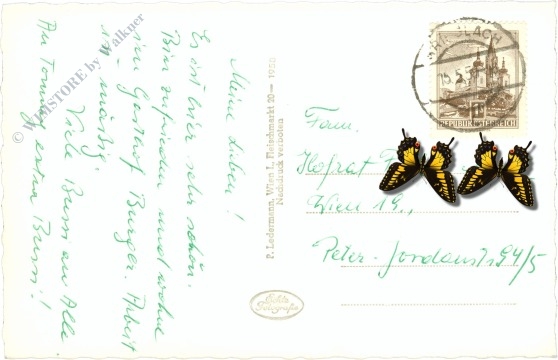 Meine Lieben!
Es ist hier sehr schön.
Bin zufrieden und wohne
im Gasthof Burger. Arbeit
ist mässig.
Viele Bussi an Alle
An Tommy extra Bussi!
© WIMSTORE by Walkner
P. Ledermann, Wien I., Fleischmarkt 20 — 1958
Nachdruck verboten
Echte
Fotografie
REPUBLIK ÖSTERREICH
Fam.
Hofrat
Wien 19.,
Peter-Jordanstr. 94/5